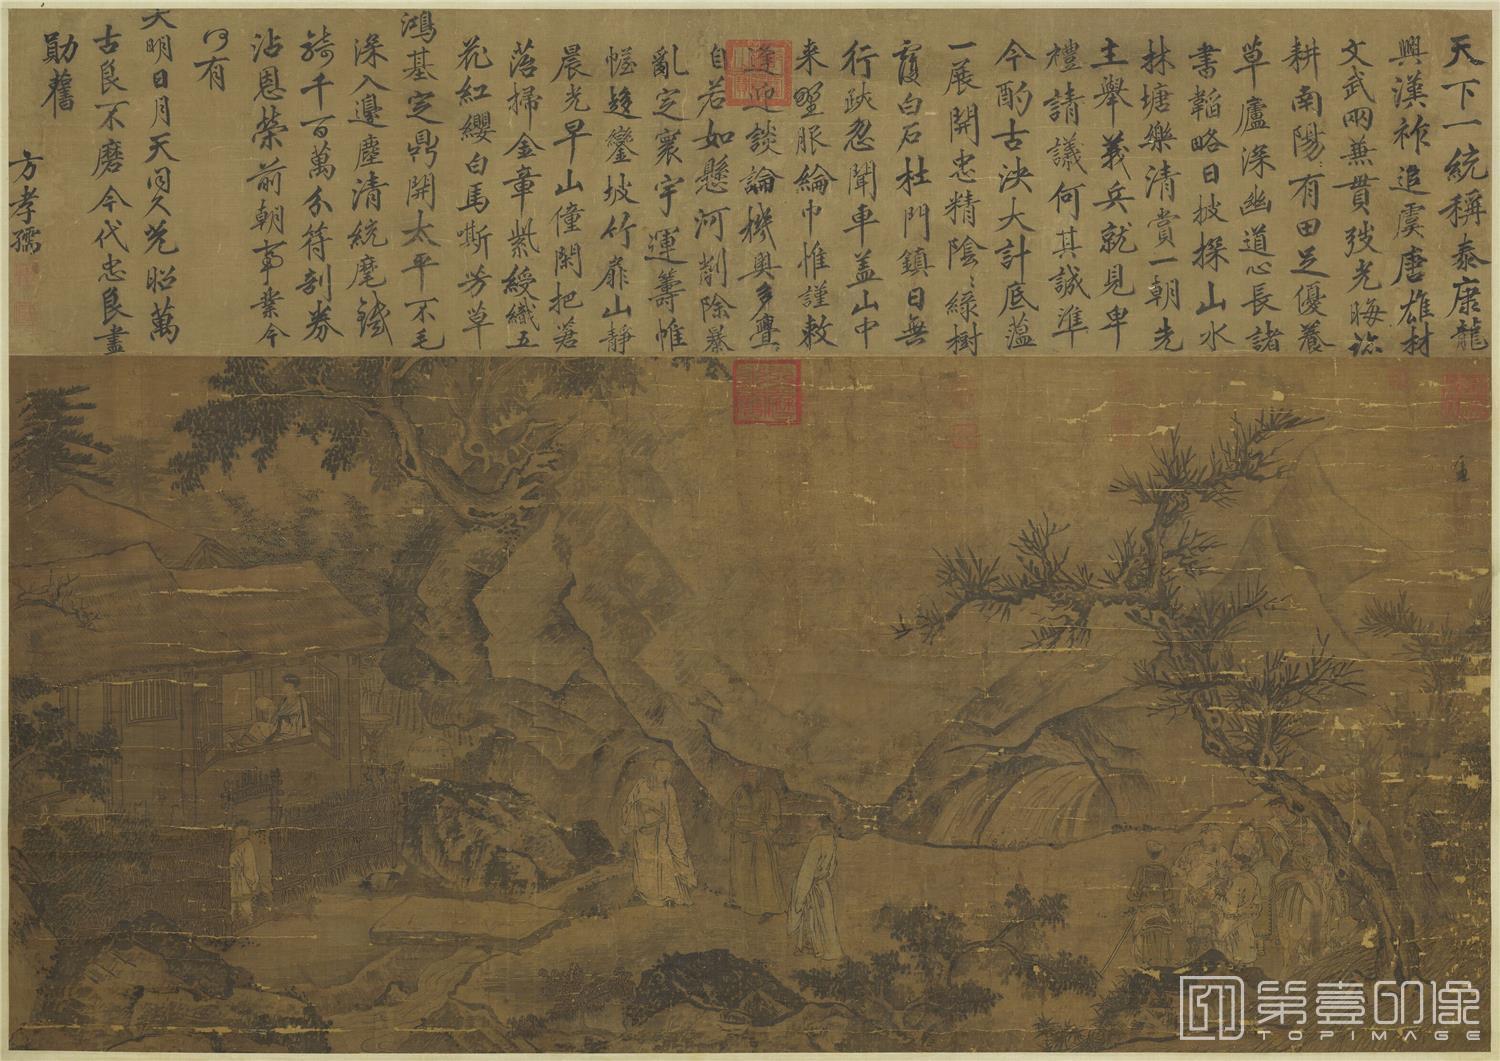 天下一統稱泰康龍
興漢祚追虞唐雄材
文武兩兼貫弢光晦跡
耕南陽有田足優養
草廬深幽道心長諸
書韜略日披探山水
林塘樂清賞一朝先
主舉義兵就見卑
禮請議何其誠準
今酌古決大計底蘊
一展開忠精陰陰綠樹
覆白石杜門鎮日無
行跡忽聞車蓋山中
来野服綸巾惟謹敕
逢迎談論機輿多亹
自若如懸河削除暴
亂定寰宇運籌帷
幄趍鑾坡竹扉山靜
晨光早山僮閑把蒼
苔掃金章紫綬織五
花紅纓白馬嘶芳草
鴻基定鼎開太平不毛
深入邊塵清統麾鐵
騎千百萬分符剖券
沾恩榮前朝事業今
何有
大明日月天同久光昭萬
古良不磨今代忠良盡
勛舊
方孝孺
第壹印像
TOPIMAGE